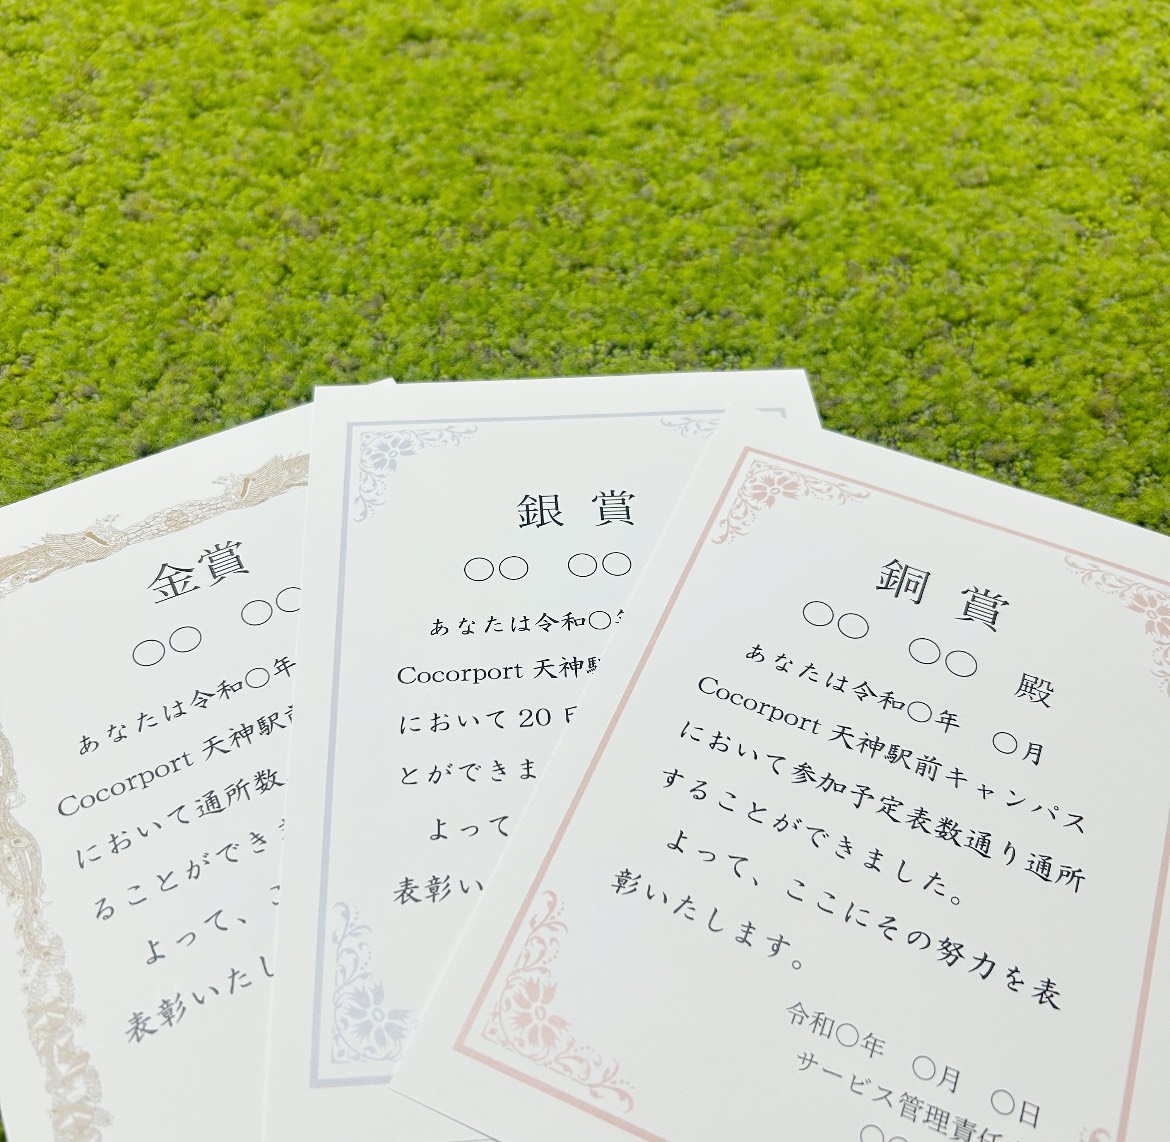 金賞
○○　○○
あなたは令和○年
Cocorport 天神駅前
において通所数
ることができま
よって、こ
表彰いたし
銀賞
○○　○○
あなたは令和○年
Cocorport 天神駅
において 20
とができま
よって
表彰い
銅賞
○○　○○　殿
あなたは令和○年　○月
Cocorport 天神駅前キャンパス
において参加予定表数通り通所
することができました。
よって、ここにその努力を表
彰いたします。
令和○年　○月　○日
サービス管理責任
○○